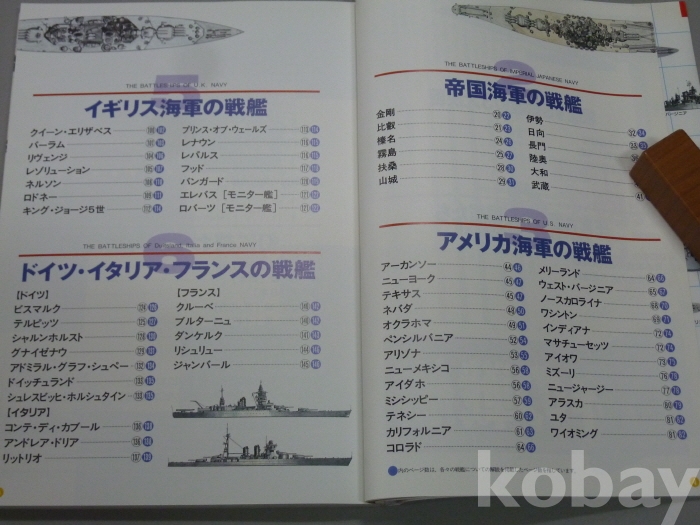 THE BATTLESHIPS OF U.K. NAVY
イギリス海軍の戦艦
クイーン・エリザベス
バーラム
リヴェンジ
レゾリューション
ネルソン
ロドネー
キング・ジョージ5世
プリンス・オブ・ウェールズ
レナウン
レパルス
フッド
バンガード
エレバス［モニター艦］
ロバーツ［モニター艦］
THE BATTLESHIPS OF Deutschland, Italia and France NAVY
ドイツ・イタリア・フランスの戦艦
【ドイツ】
ビスマルク
テルピッツ
シャルンホルスト
グナイゼナウ
アドミラル・グラフ・シュペー
ドイッチュランド
シュレスビッヒ・ホルシュタイン
【イタリア】
コンテ・ディ・カブール
アンドレア・ドリア
リットリオ
【フランス】
クルーベ
ブルターニュ
ダンケルク
リシュリュー
ジャンバール
THE BATTLESHIPS OF IMPERIAL JAPANESE NAVY
帝国海軍の戦艦
金剛 20 22
比叡 21 23
榛名 24 26
霧島 25 27
扶桑 28 30
山城 29 31
伊勢
日向 32 34
長門
陸奥
大和
武蔵
THE BATTLESHIPS OF U.S. NAVY
アメリカ海軍の戦艦
アーカンソー 44 46
ニューヨーク 45 47
テキサス 45 47
ネバダ 48 50
オクラホマ 49 51
ペンシルバニア 52 54
アリゾナ 53 55
ニューメキシコ 56 58
アイダホ 56 58
ミシシッピー 57 58
テネシー 60 62
カリフォルニア 61 63
コロラド 64 66
メリーランド 64 66
ウェスト・バージニア 65 67
ノースカロライナ
ワシントン
インディアナ 72 74
マサチューセッツ 72 74
アイオワ
ミズーリ 76 78
ニュージャージー 77 78
アラスカ
ユタ
ワイオミング
内のページ数は、各々の戦艦についての解説を掲載したページ数を指しています。
バージニア
kobay